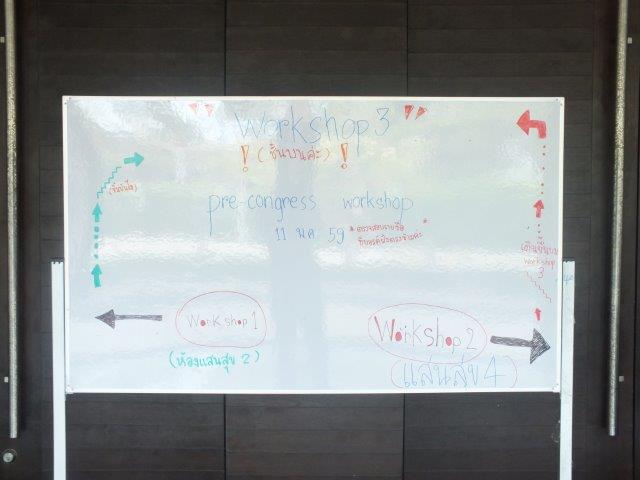 " Workshop 3 "
! (ชั้นบนค่ะ) !
pre-congress workshop
11 พค 59
* ตรวจสอบรายชื่อ *
(ขึ้นบันได)
เดินขึ้นบน
workshop
3
Workshop 1
(ห้องแสนสุข 2)
Workshop 2
(แสนสุข 4)